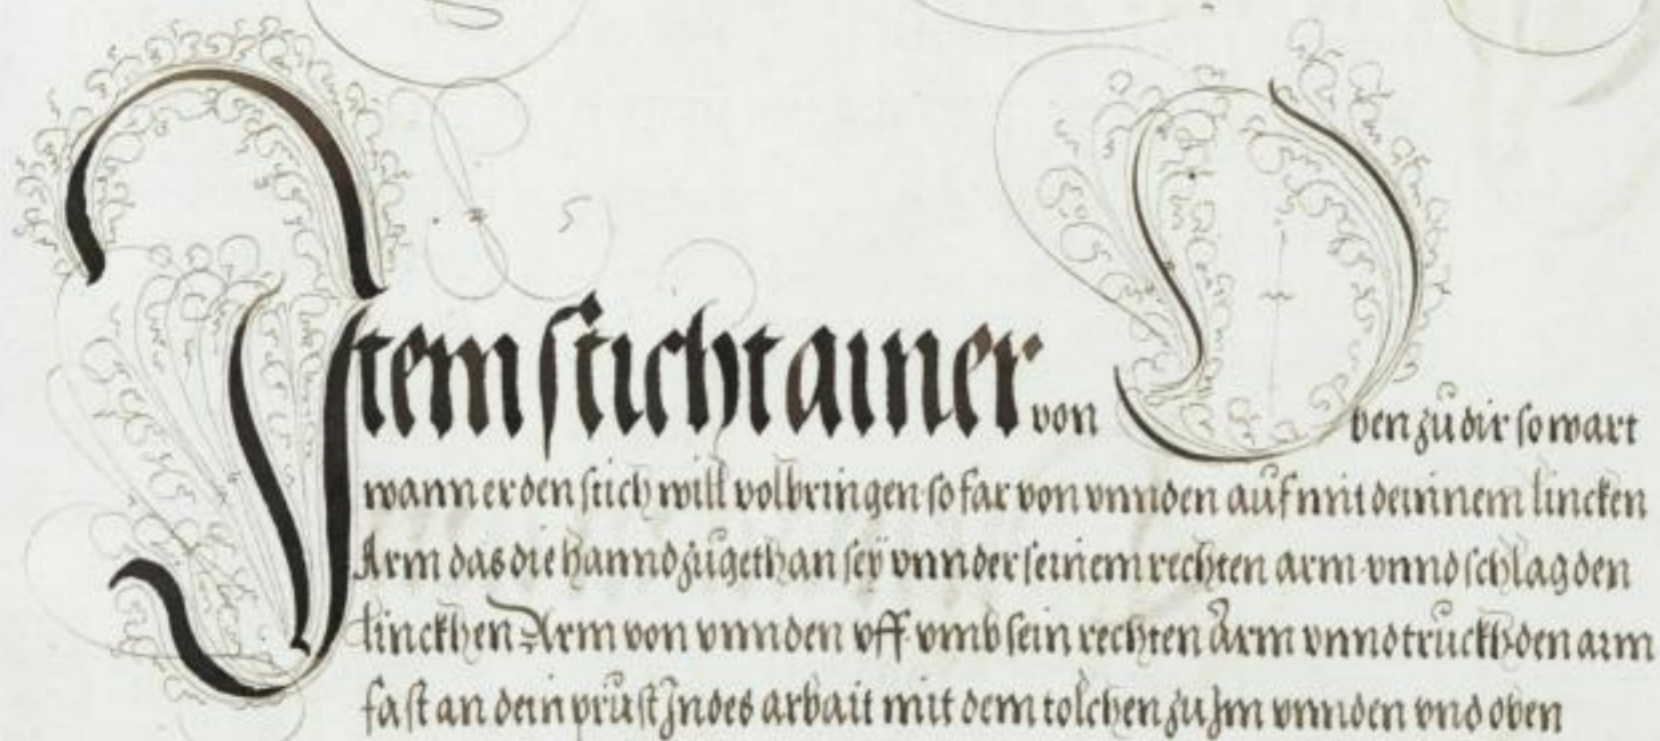 Item sticht ainer von Oben zů dir so wart
wann er den stich will volbringen so far von vnnden auf mit deinnem lincken
Arm das die hannd zůgethan seÿ vnnder seinem rechten arm vnnd schlag den
linckhen Arm von vnnden vff vmb sein rechten Arm vnnd truckh den arm
fast an dein průst Jndes arbait mit dem tolchen zu Jm vnnden vnd oben